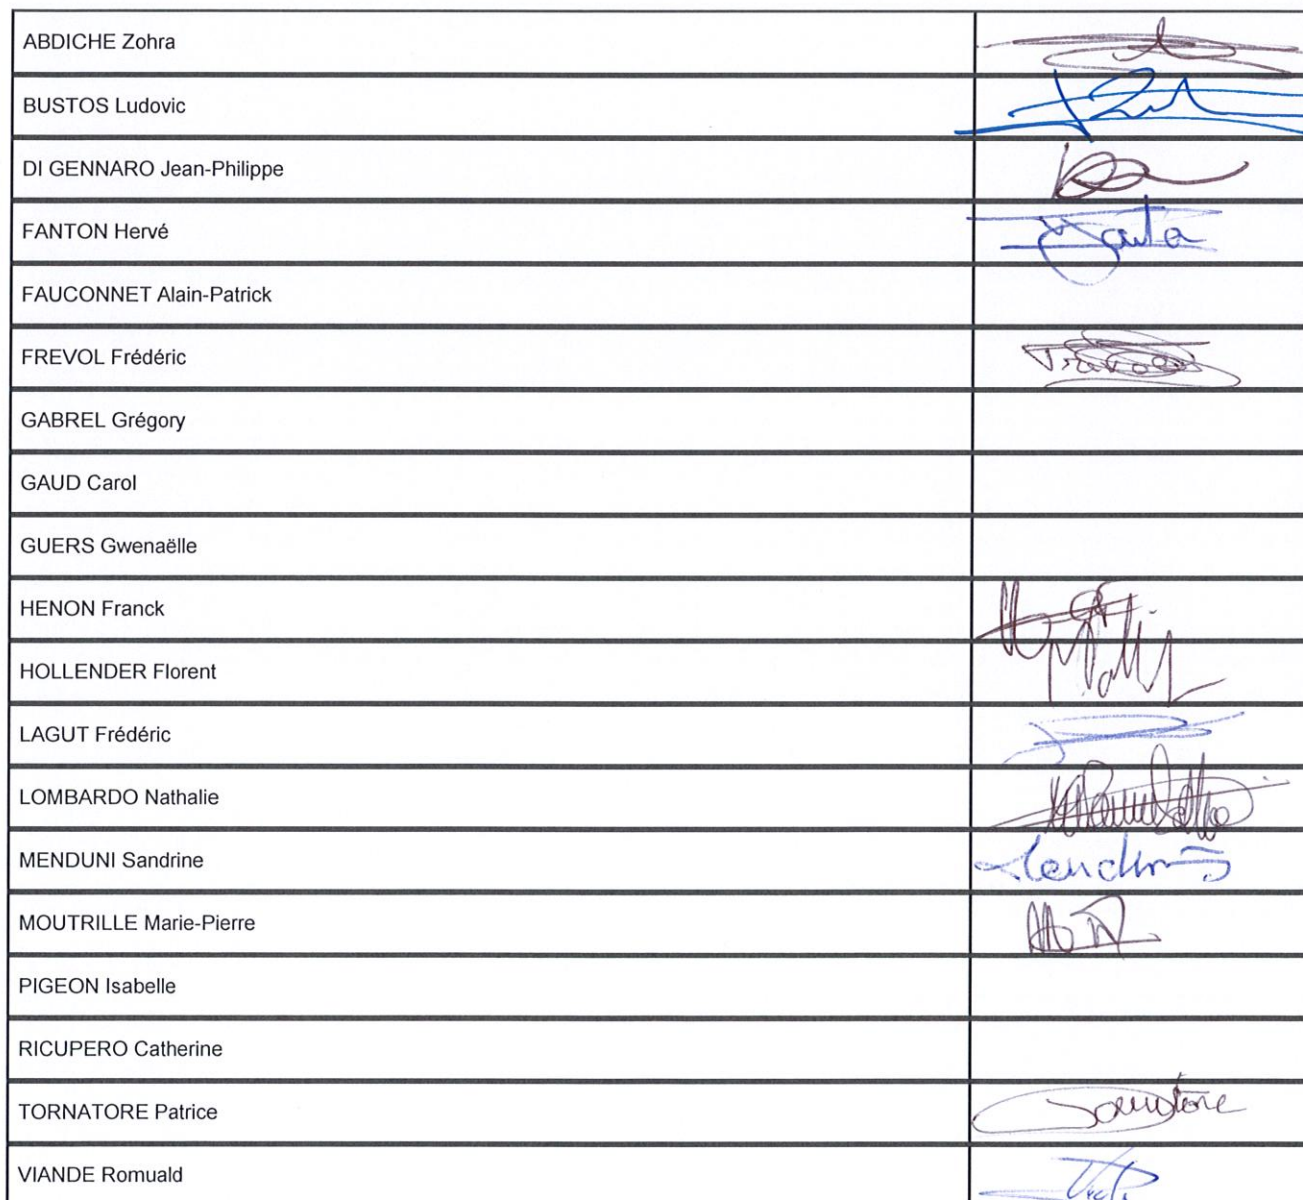 ABDICHE Zohra
BUSTOS Ludovic
DI GENNARO Jean-Philippe
FANTON Hervé
FAUCONNET Alain-Patrick
FREVOL Frédéric
GABREL Grégory
GAUD Carol
GUERS Gwenaëlle
HENON Franck
HOLLENDER Florent
LAGUT Frédéric
LOMBARDO Nathalie
MENDUNI Sandrine
MOUTRILLE Marie-Pierre
PIGEON Isabelle
RICUPERO Catherine
TORNATORE Patrice
VIANDE Romuald